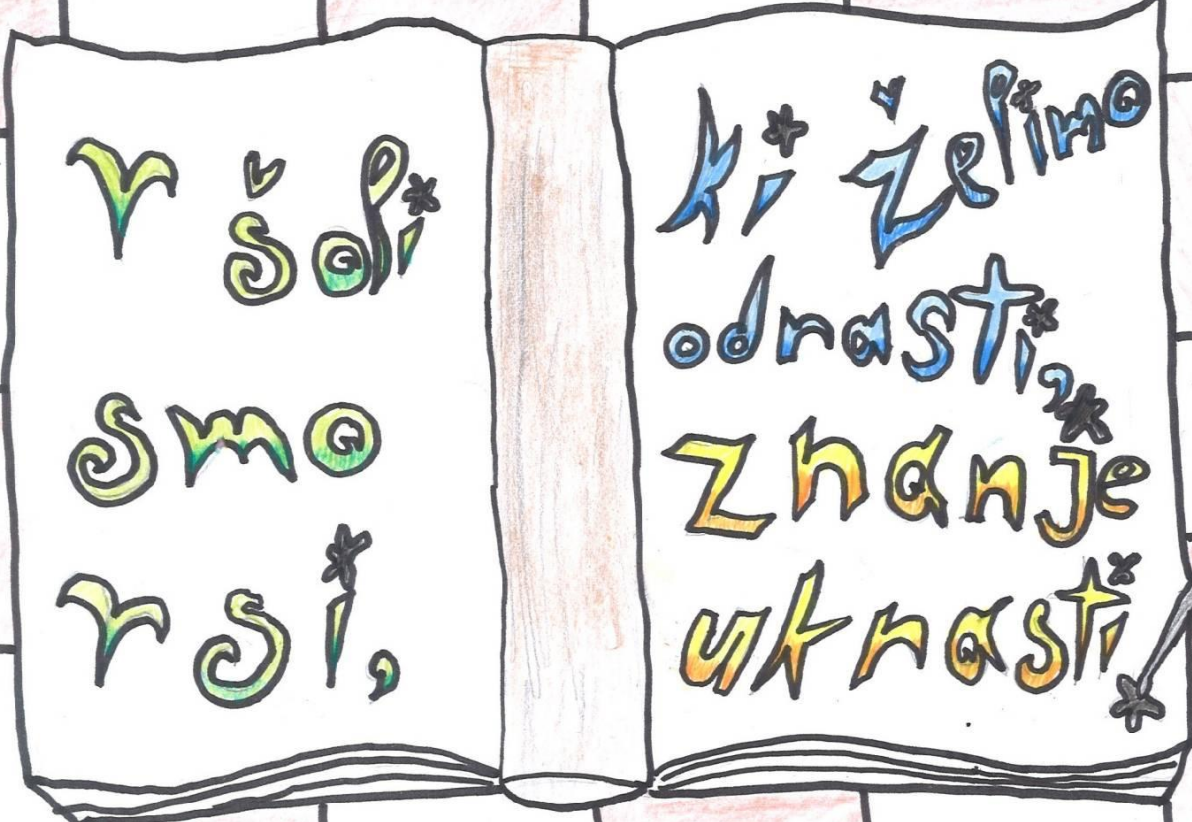 V šoli
smo
vsi,
ki želimo
odrasti,
znanje
ukrasti